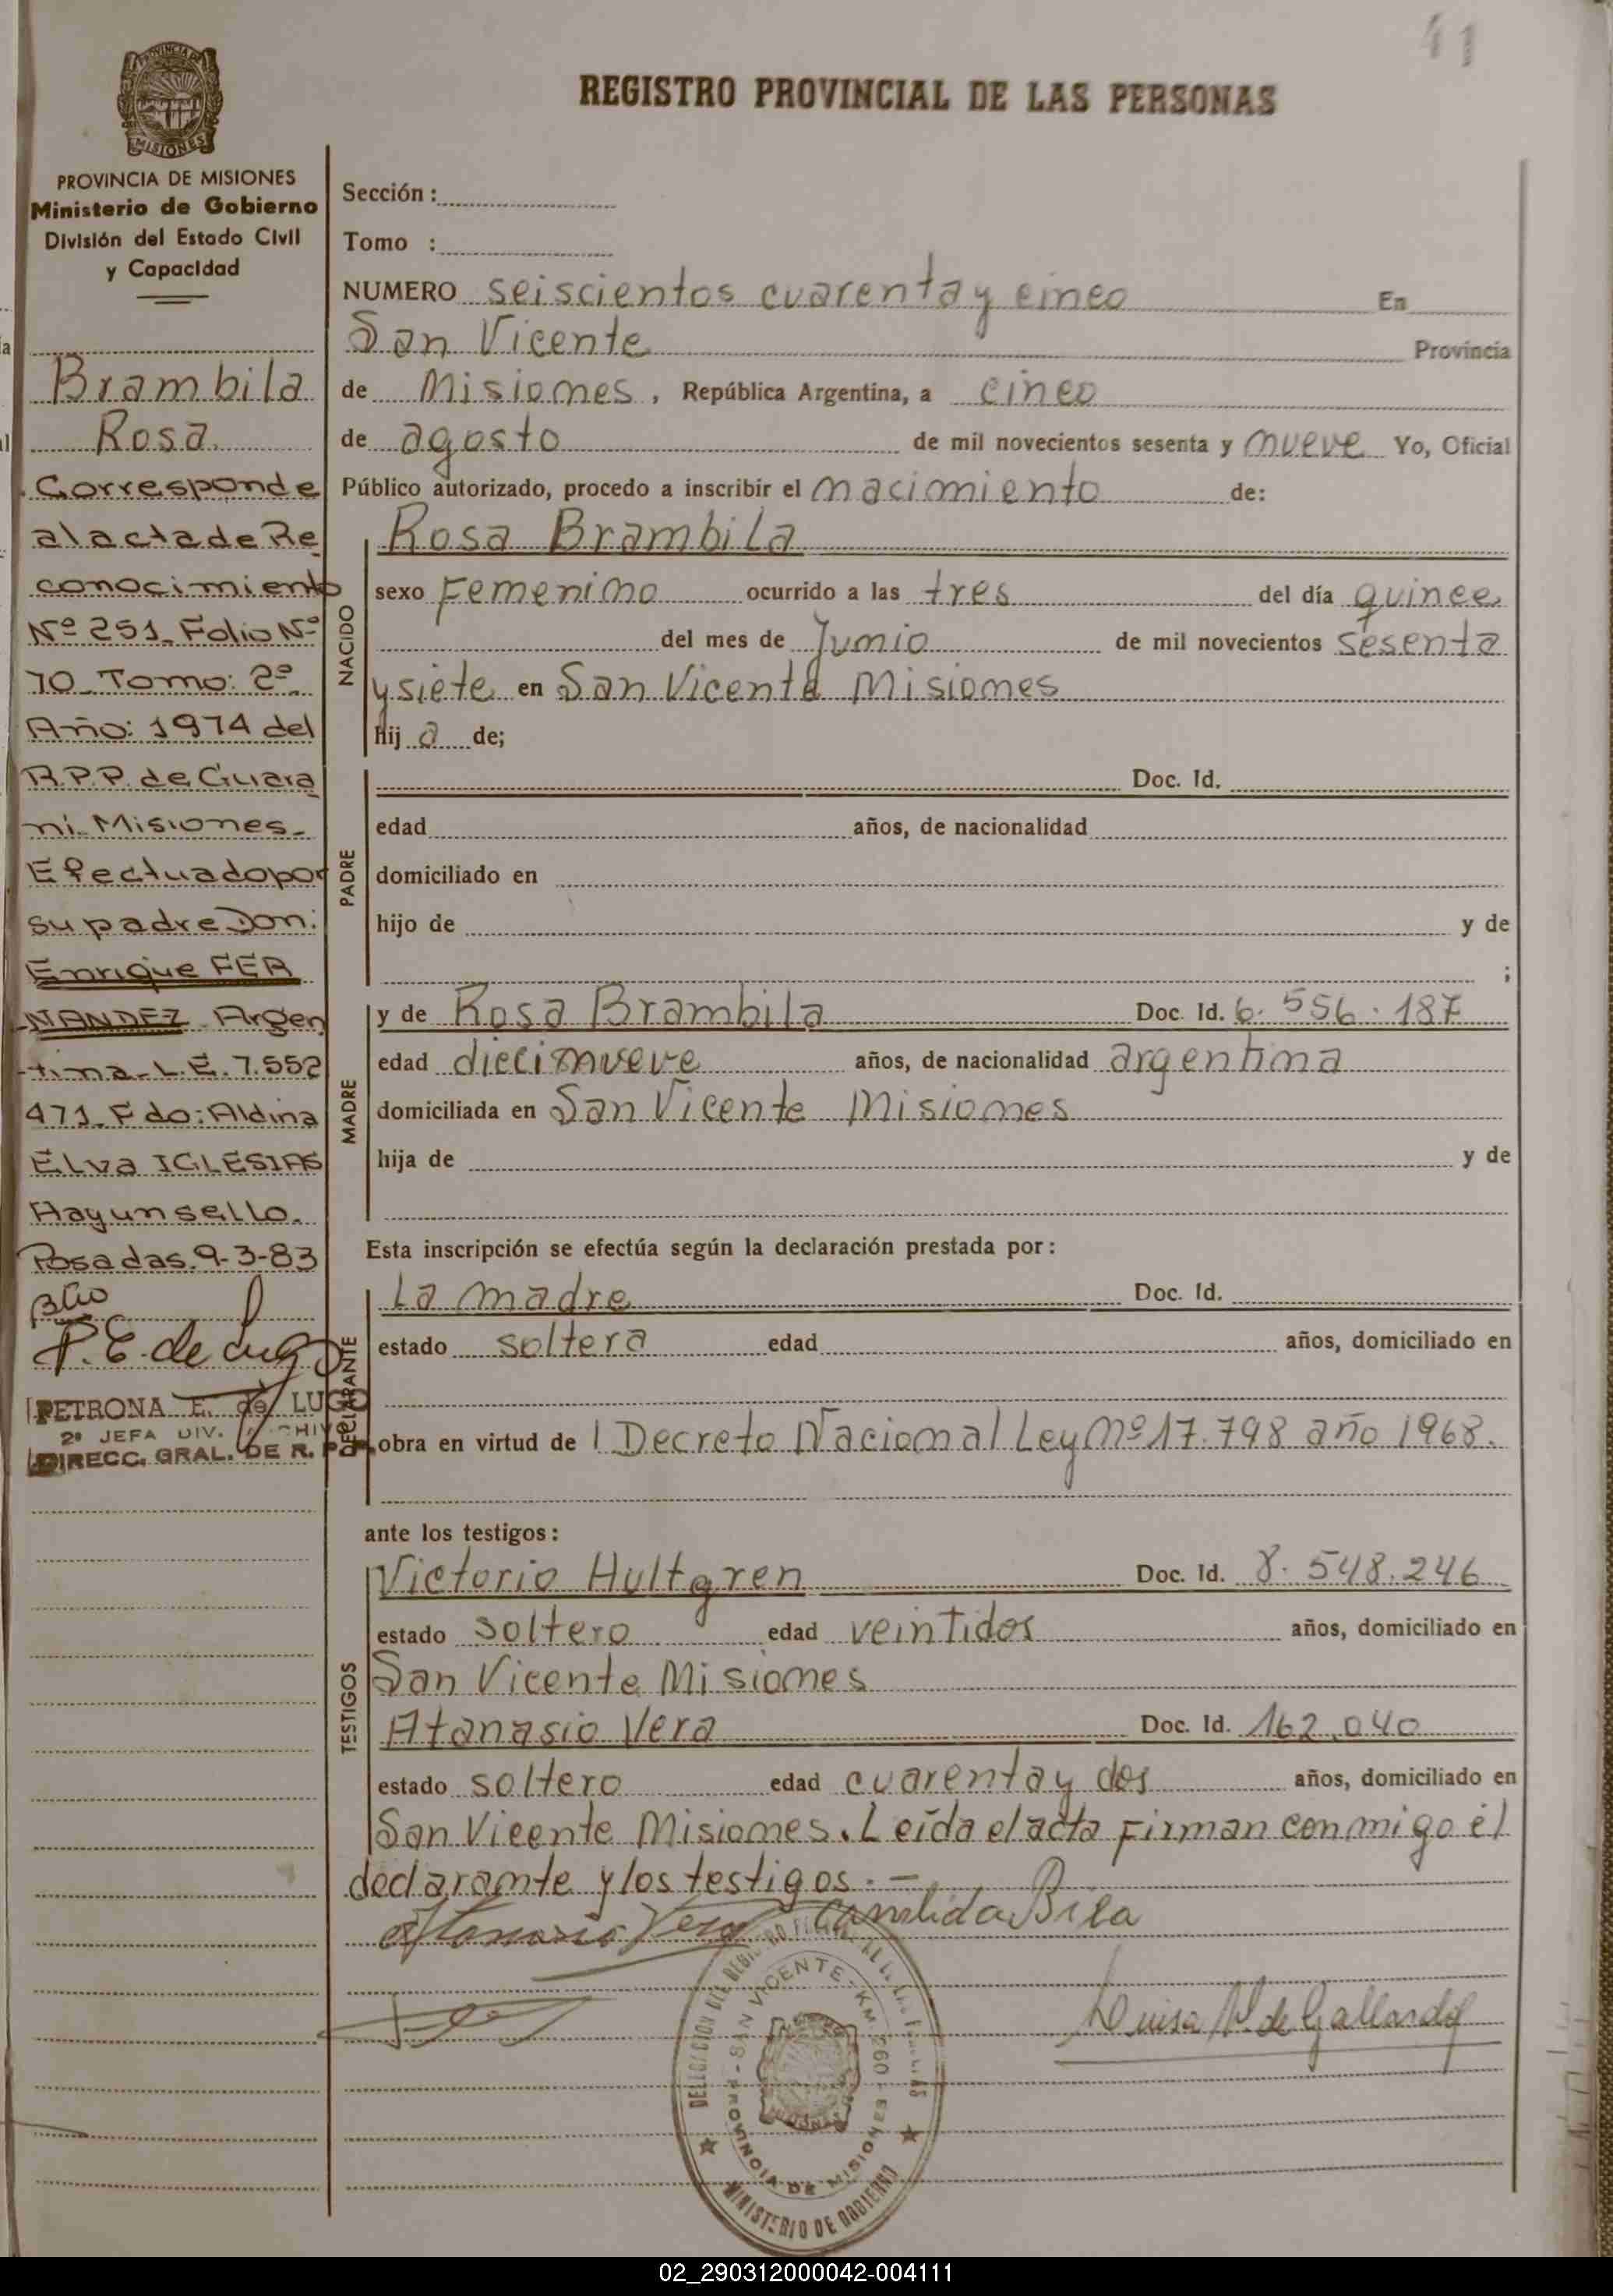 41
REGISTRO PROVINCIAL DE LAS PERSONAS
PROVINCIA DE
MISIONES
PROVINCIA DE MISIONES
Ministerio de Gobierno
División del Estado Civil
y Capacidad
Brambila
Rosa
Corresponde
al acta de Re
conocimiento
Nº 251. Folio Nº
70 Tomo: 2º
Año: 1974 del
R.P.P. de Guara
ní. Misiones.
Efectuado por
su padre Don:
Enrique FER
NANDEZ Argen
tina L.E. 7.552
471. Fdo: Aldina
Elva IGLESIAS
Hay un sello.
Posadas. 9-3-83
P.E. de Lugo
PETRONA E. de LUGO
2º JEFA DIV.
DIRECC. GRAL. DE R. P.
Sección :
Tomo :
NUMERO seiscientos cuarenta y cinco En
San Vicente Provincia
de Misiones, República Argentina, a cinco
de agosto de mil novecientos sesenta y nueve Yo, Oficial
Público autorizado, procedo a inscribir el nacimiento de:
NACIDO
Rosa Brambila
sexo Femenino ocurrido a las tres del día quince
del mes de Junio de mil novecientos sesenta
y siete en San Vicente Misiones
hij a de;
PADRE
Doc. Id.
edad años, de nacionalidad
domiciliado en
hijo de y de
;
MADRE
y de Rosa Brambila Doc. Id. 6.556.187
edad diecinueve años, de nacionalidad argentina
domiciliada en San Vicente Misiones
hija de y de
Esta inscripción se efectúa según la declaración prestada por:
DECLARANTE
La madre Doc. Id.
estado soltera edad años, domiciliado en
obra en virtud de l Decreto Nacional Ley nº 17.798 año 1968.
ante los testigos:
TESTIGOS
Victorio Hultgren Doc. Id. 8.548.246
estado soltero edad veintidos años, domiciliado en
San Vicente Misiones
Atanasio Vera Doc. Id. 162.040
estado soltero edad cuarenta y dos años, domiciliado en
San Vicente Misiones. Leída el acta firman conmigo el
declarante y los testigos. -
Atanasio Vera Candida Bila
Luisa de Gallardo
SAN VICENTE - KM 260
PROVINCIA DE MISIONES
MINISTERIO DE GOBIERNO
02_290312000042-004111